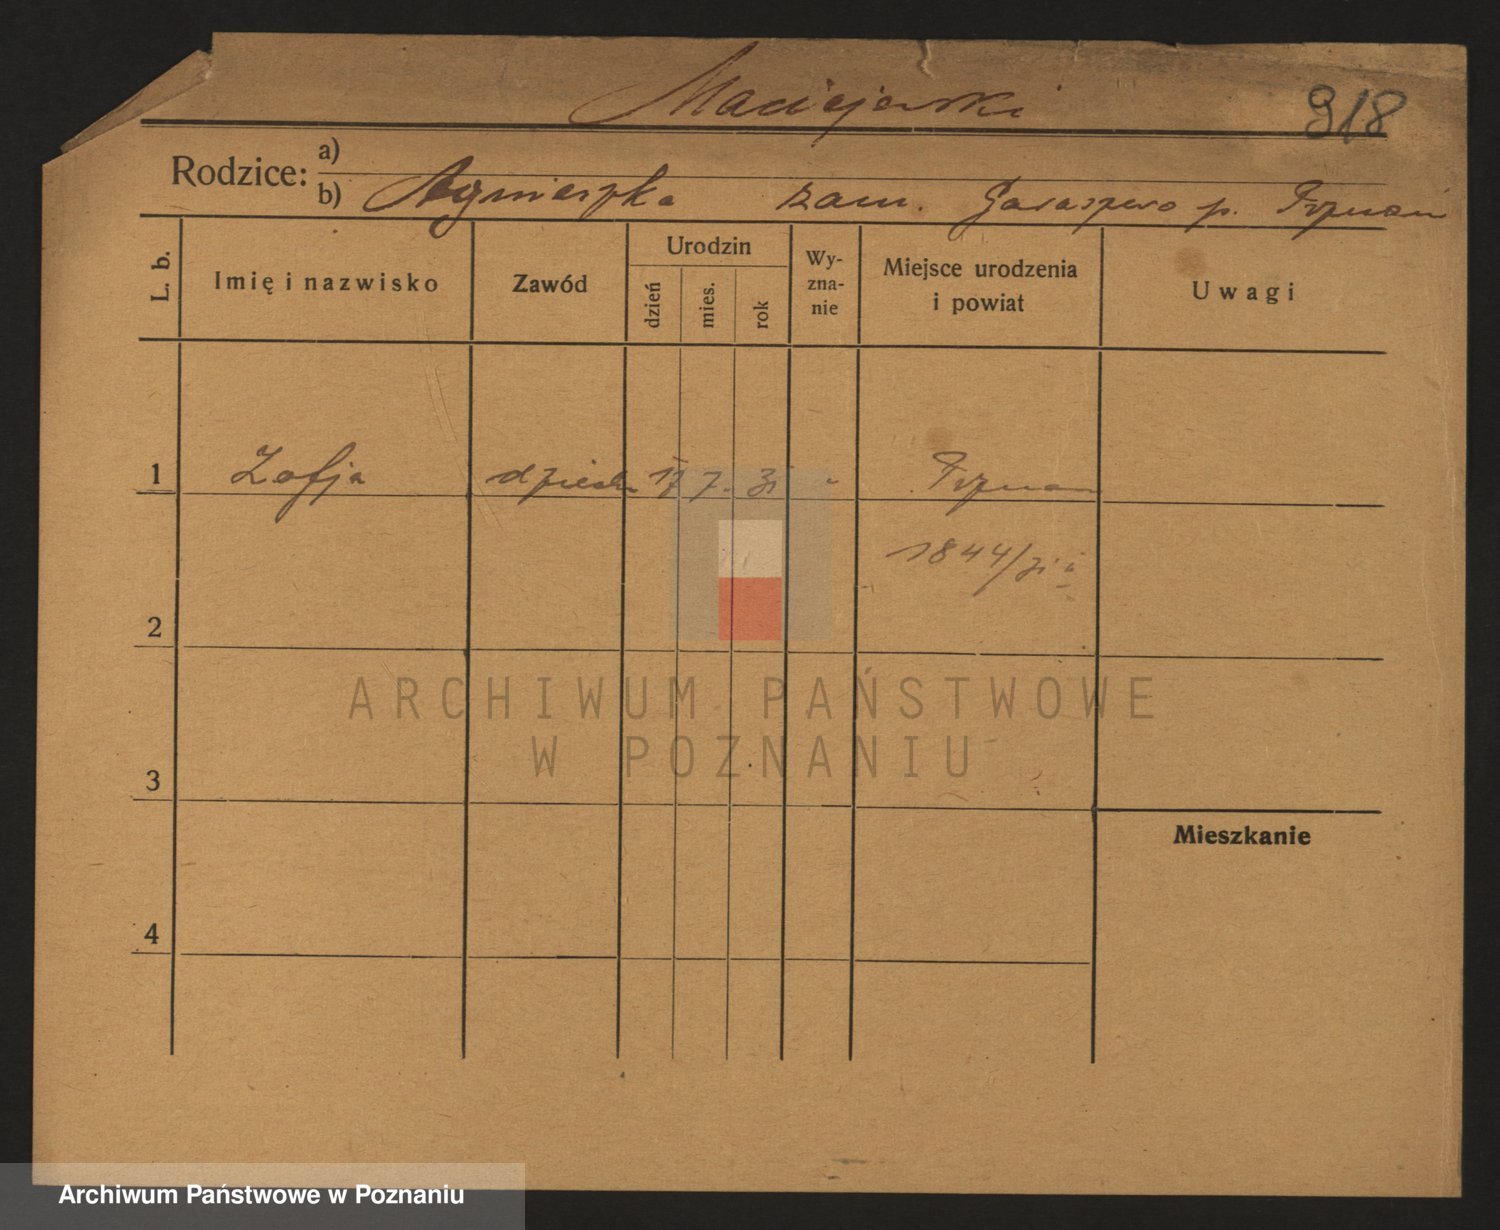 Maciejewski 918
Rodzice: a)
b) Agnieszka zam. Garaszewo p. Poznań
L. b. Imię i nazwisko Zawód Urodzin dzień mies. rok Wy-zna-nie Miejsce urodzenia i powiat Uwagi
1 Zofja dziecko 17 7. 31 " Poznań
1844/31
2
ARCHIWUM PAŃSTWOWE
W POZNANIU
3
Mieszkanie
4
Archiwum Państwowe w Poznaniu